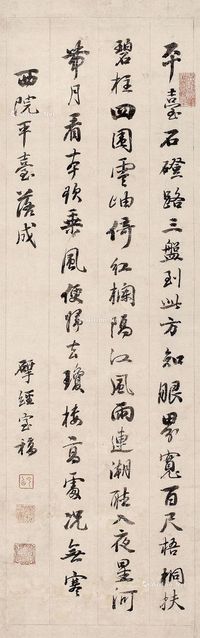 平臺石磴路三盤到此方知眼界寬百尺梧桐扶
碧柱四圍雲岫倚紅欄隔江風雨連潮聽入夜星河
帶月看本欲乘風便歸去瓊樓高處況無寒
西院平臺落成
揅經室稿